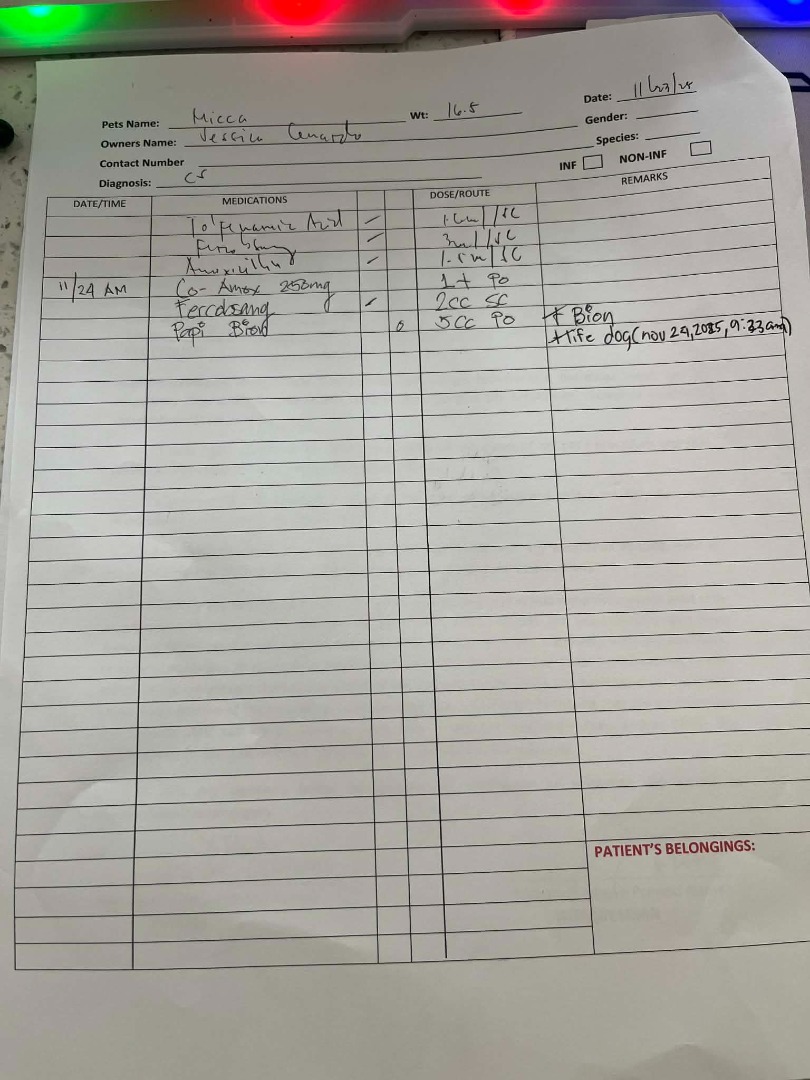 Pets Name: Micca Wt: 16.5 Date: 11/23/25
Owners Name: Jessica Gender:
Contact Number Species:
Diagnosis: CS INF NON-INF
DATE/TIME MEDICATIONS DOSE/ROUTE REMARKS
Tolfenamic Acid / SC
/ 3ml/SC
Amoxicillin / 1.5ml SC
11/24 AM Co-Amox 250mg 1t PO
Fercobsang / 2cc SC
Papi Bion 0 5cc PO + Bion
+life dog(nov 24,2025,9:33am)
PATIENT'S BELONGINGS: